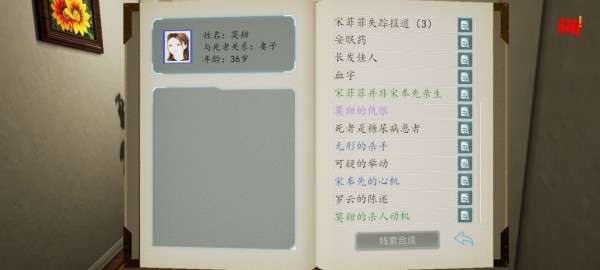 姓名：莫甜
与死者关系：妻子
年龄：36岁
宋菲菲失踪报道（3）
安眠药
长发佳人
血字
宋菲菲并非宋奉先亲生
莫甜的仇恨
死者是糖尿病患者
无形的杀手
可疑的举动
宋奉先的心机
罗云的陈述
莫甜的杀人动机
线索合成